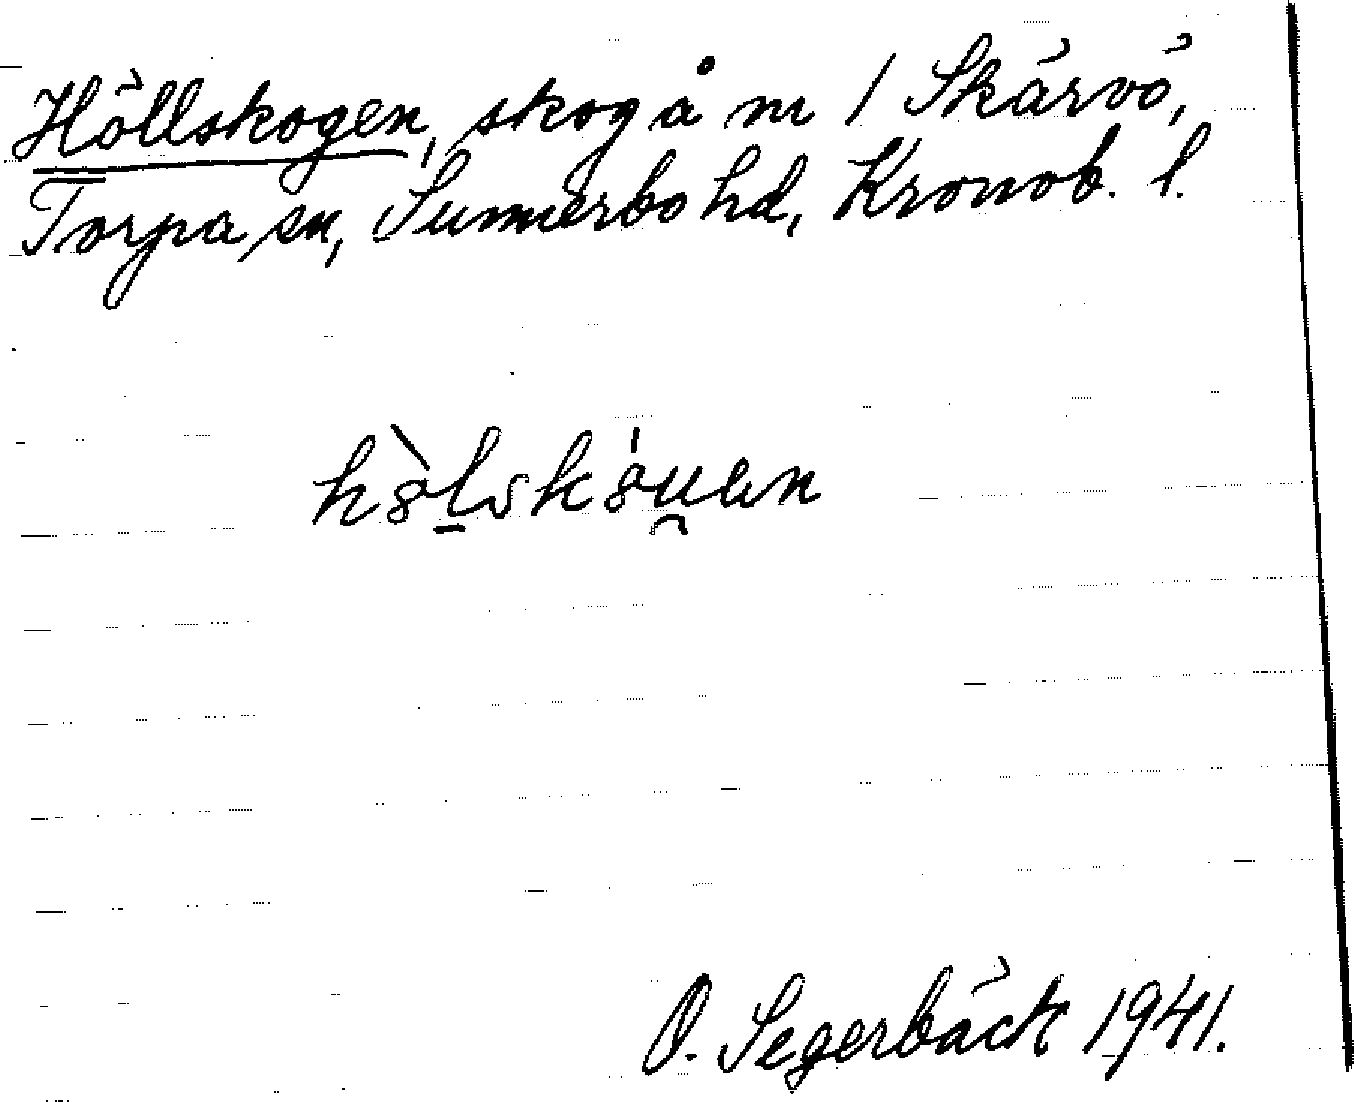 Höllskogen, skog å nr 1 Skärvö,
Torpa sn, Sunnerbo hd, Kronob. l.
O. Segerbäck 1941.